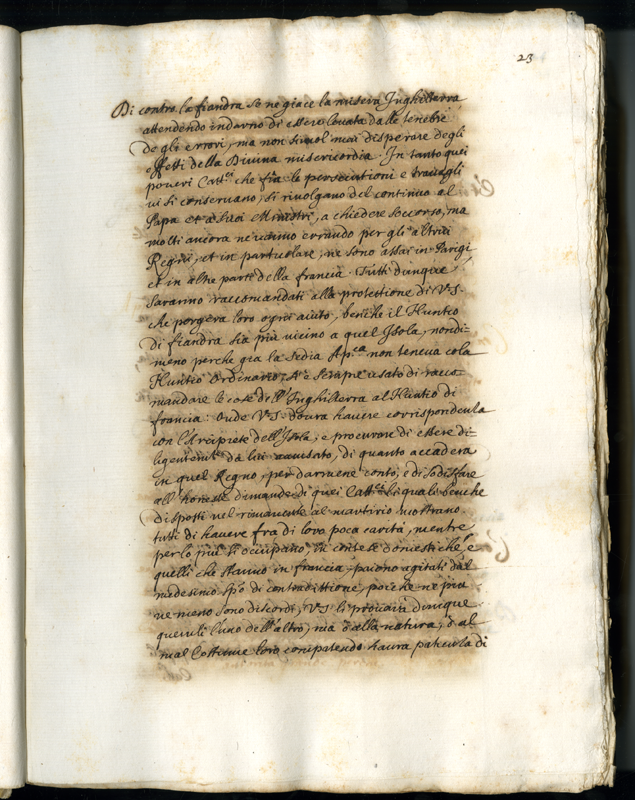 23
Di contro la fiandra se ne giace la misera Inghilterra
attendendo indarno di essere levata dalle tenebre
degli errori, ma non si vuol mai disperare degli
effetti della Divina misericordia. In tanto quei
poveri Catt.ci che fra le persecutioni e travagli
vi si conservano, si rivolgano del continuo al
Papa et a suoi Ministri, a chiedere soccorso, ma
molti ancora ne vanno errando per gli altrui
Regni, et in particolare, ne sono assai in Parigi
et in altre parti della francia. Tutti dunque
saranno raccomandati alla protectione di V.S.
che porgerà loro ogni aiuto, benche il Nuntio
di fiandra sia più vicino a quel Isola, nondi-
meno perche gia la Sedia Ap.ca non teneva colà
Nuntio Ordinario, s'è sempre usato di racco
mandare le cose dell'Inghilterra al Nuntio di
francia: Onde V.S. dovrà havere corrispondenza
con l'Arciprete dell'Isola, e procurare di essere di-
ligentem.te da lui avvisato, di quanto accaderà
in quel Regno, per darmene conto, e di sodisfare
all'honeste dimande di quei Catt.ci li quali benche
disposti nel rimanente al martirio mostrano
tutti di havere fra di loro poca carità, mentre
per lo più si occupano, in contese domestiche, e
quelli che stanno in francia, paiono agitati dal
medesimo sp.o di contradittione, poiche ne più
ne meno sono discordi, V.S. li proverà dunque
queruli l'uno dell'altro, ma o alla natura, o al
mal costume loro compatendo havrà paticula di